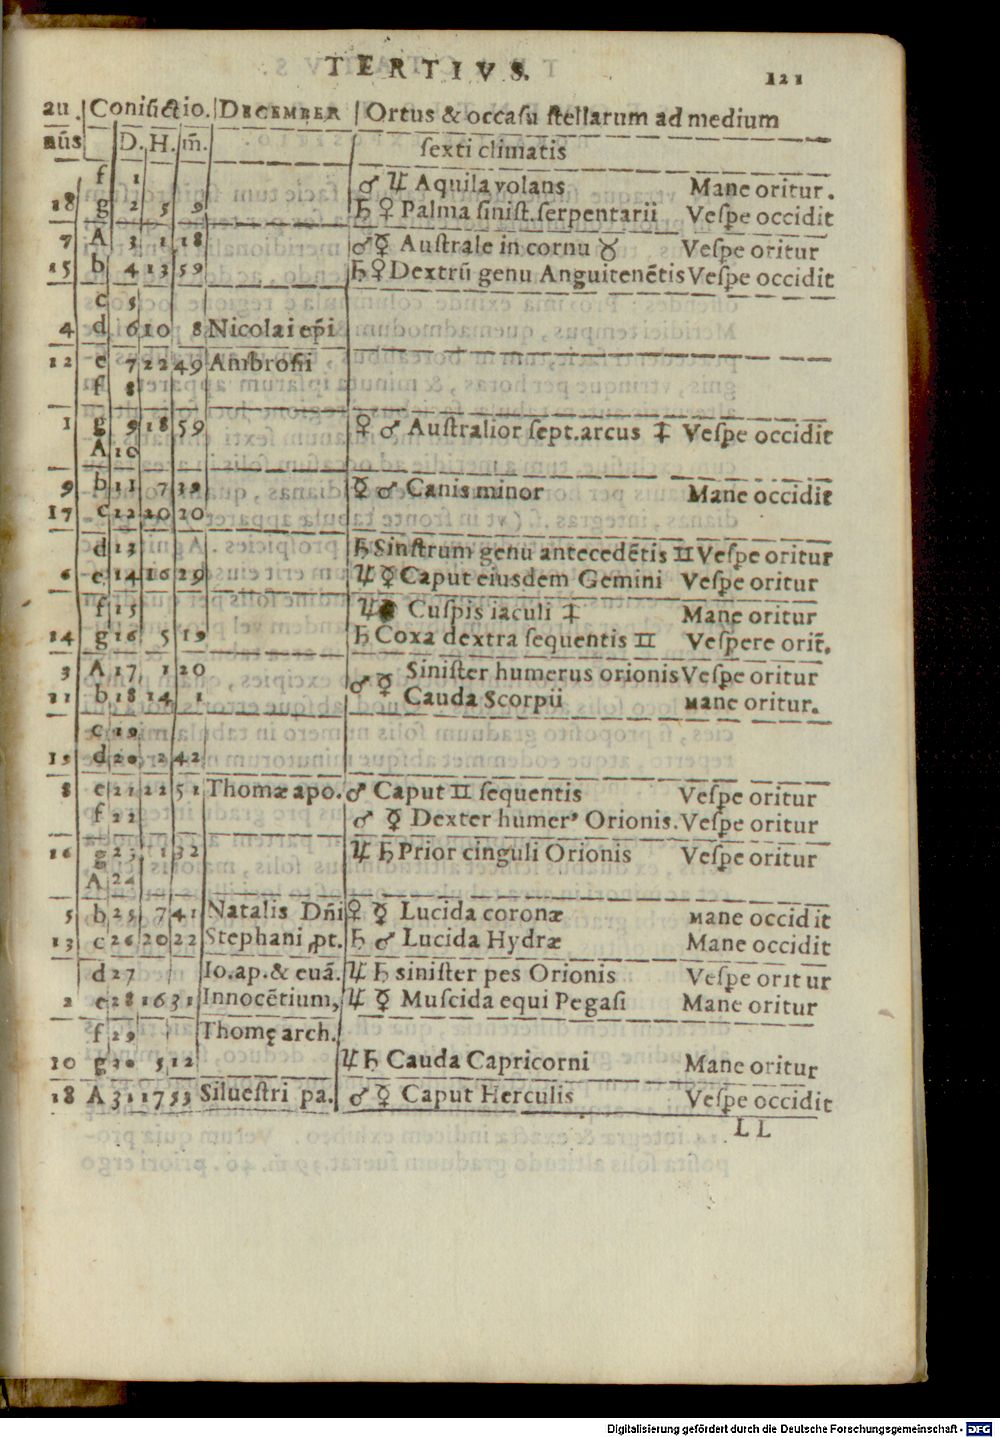 TERTIVS. 121
au. Coniūctio. DECEMBER Ortus & occasu stellarum ad medium
nūs D. H. m̄. sexti climatis
f 1 ♂ ♃ Aquila volans Mane oritur.
18 g 2 5 9 ♄ ♀ Palma sinist. serpentarii Vespe occidit
7 A 3 1 18 ♂ ☿ Australe in cornu ♉ Vespe oritur
15 b 4 13 59 ♄ ♀ Dextrū genu Anguitenētis Vespe occidit
c 5
4 d 6 10 8 Nicolai ep̄i
12 e 7 22 49 Ambrosii
f 8
1 g 9 18 59 ♀ ♂ Australior sept. arcus ♐ Vespe occidit
A 10
9 b 11 7 19 ☿ ♂ Canis minor Mane occidit
17 c 12 20 20
d 13 ♄ Sinstrum genu antecedētis ♊ Vespe oritur
6 e 14 16 29 ♃ ☿ Caput eiusdem Gemini Vespe oritur
f 15 ♃ Cuspis iaculi ♐ Mane oritur
14 g 16 5 19 ♄ Coxa dextra sequentis ♊ Vespere orit̄.
3 A 17 1 20 Sinister humerus orionis Vespe oritur
11 b 18 14 1 ♂ ☿ Cauda Scorpii Mane oritur.
c 19
19 d 20 2 42
8 e 21 22 51 Thomæ apo. ♂ Caput ♊ sequentis Vespe oritur
f 22 ♂ ☿ Dexter humer' Orionis. Vespe oritur
16 g 23 1 32 ♃ ♄ Prior cinguli Orionis Vespe oritur
A 24
5 b 25 7 41 Natalis Dn̄i ♀ ☿ Lucida coronæ Mane occidit
13 c 26 20 22 Stephani pt. ♄ ♂ Lucida Hydræ Mane occidit
d 27 Io. ap. & euā. ♃ ♄ sinister pes Orionis Vespe oritur
2 e 28 16 31 Innocētium, ♃ ☿ Muscida equi Pegasi Mane oritur
f 29 Thomę arch.
10 g 30 5 12 ♃ ♄ Cauda Capricorni Mane oritur
18 A 31 17 53 Siluestri pa. ♂ ☿ Caput Herculis Vespe occidit
LL
Digitalisierung gefördert durch die Deutsche Forschungsgemeinschaft - DFG